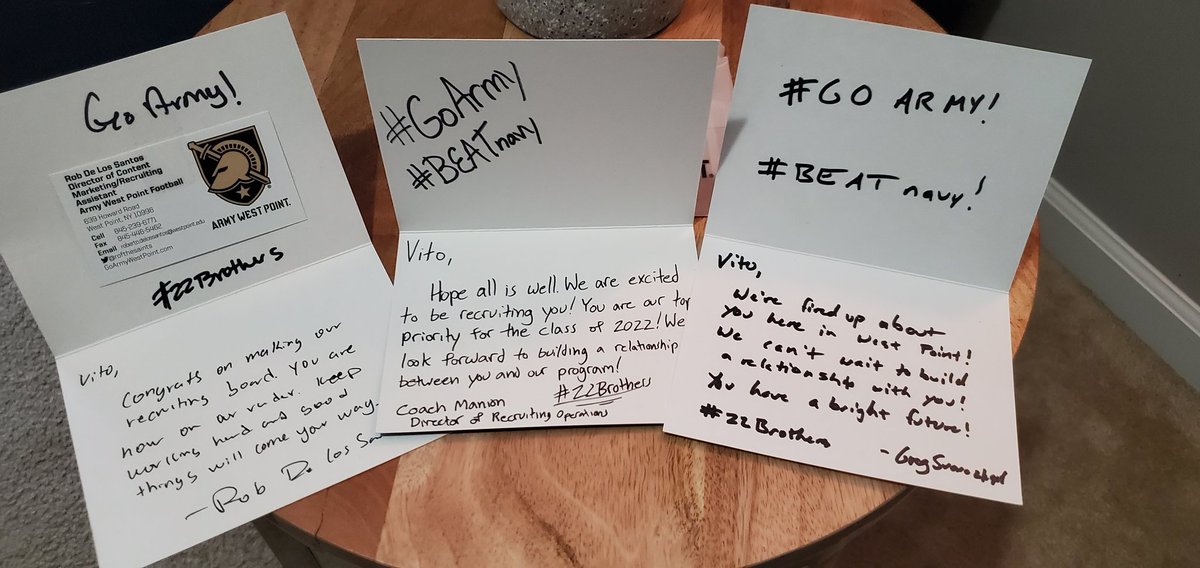 Go Army!
Rob De Los Santos
Director of Content
Marketing/Recruiting
Assistant
Army West Point Football
639 Howard Road
West Point, NY 10996
Cell 845-239-6771
Fax 845-446-5462
Email roberto.delossantos@westpoint.edu
@rofthesaints
GoArmyWestPoint.com
ARMY WEST POINT.
#22Brothers
Vito,
Congrats on making our
recruiting board. You are
now on our radar. Keep
working hard and good
things will come your way.
- Rob De Los
#GoArmy
#BEATnavy
Vito,
Hope all is well. We are excited
to be recruiting you! You are our top
priority for the class of 2022! We
look forward to building a relationship
between you and our program!
#22Brothers
Coach Manion
Director of Recruiting Operations
#GO ARMY!
#BEATnavy!
Vito,
We're fired up about
you here in West Point!
We can't wait to build
a relationship with you!
You have a bright future!
#22Brothers
- Greg